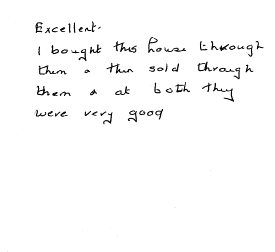 Excellent.
I bought this house through
them & then sold through
them & at both they
were very good